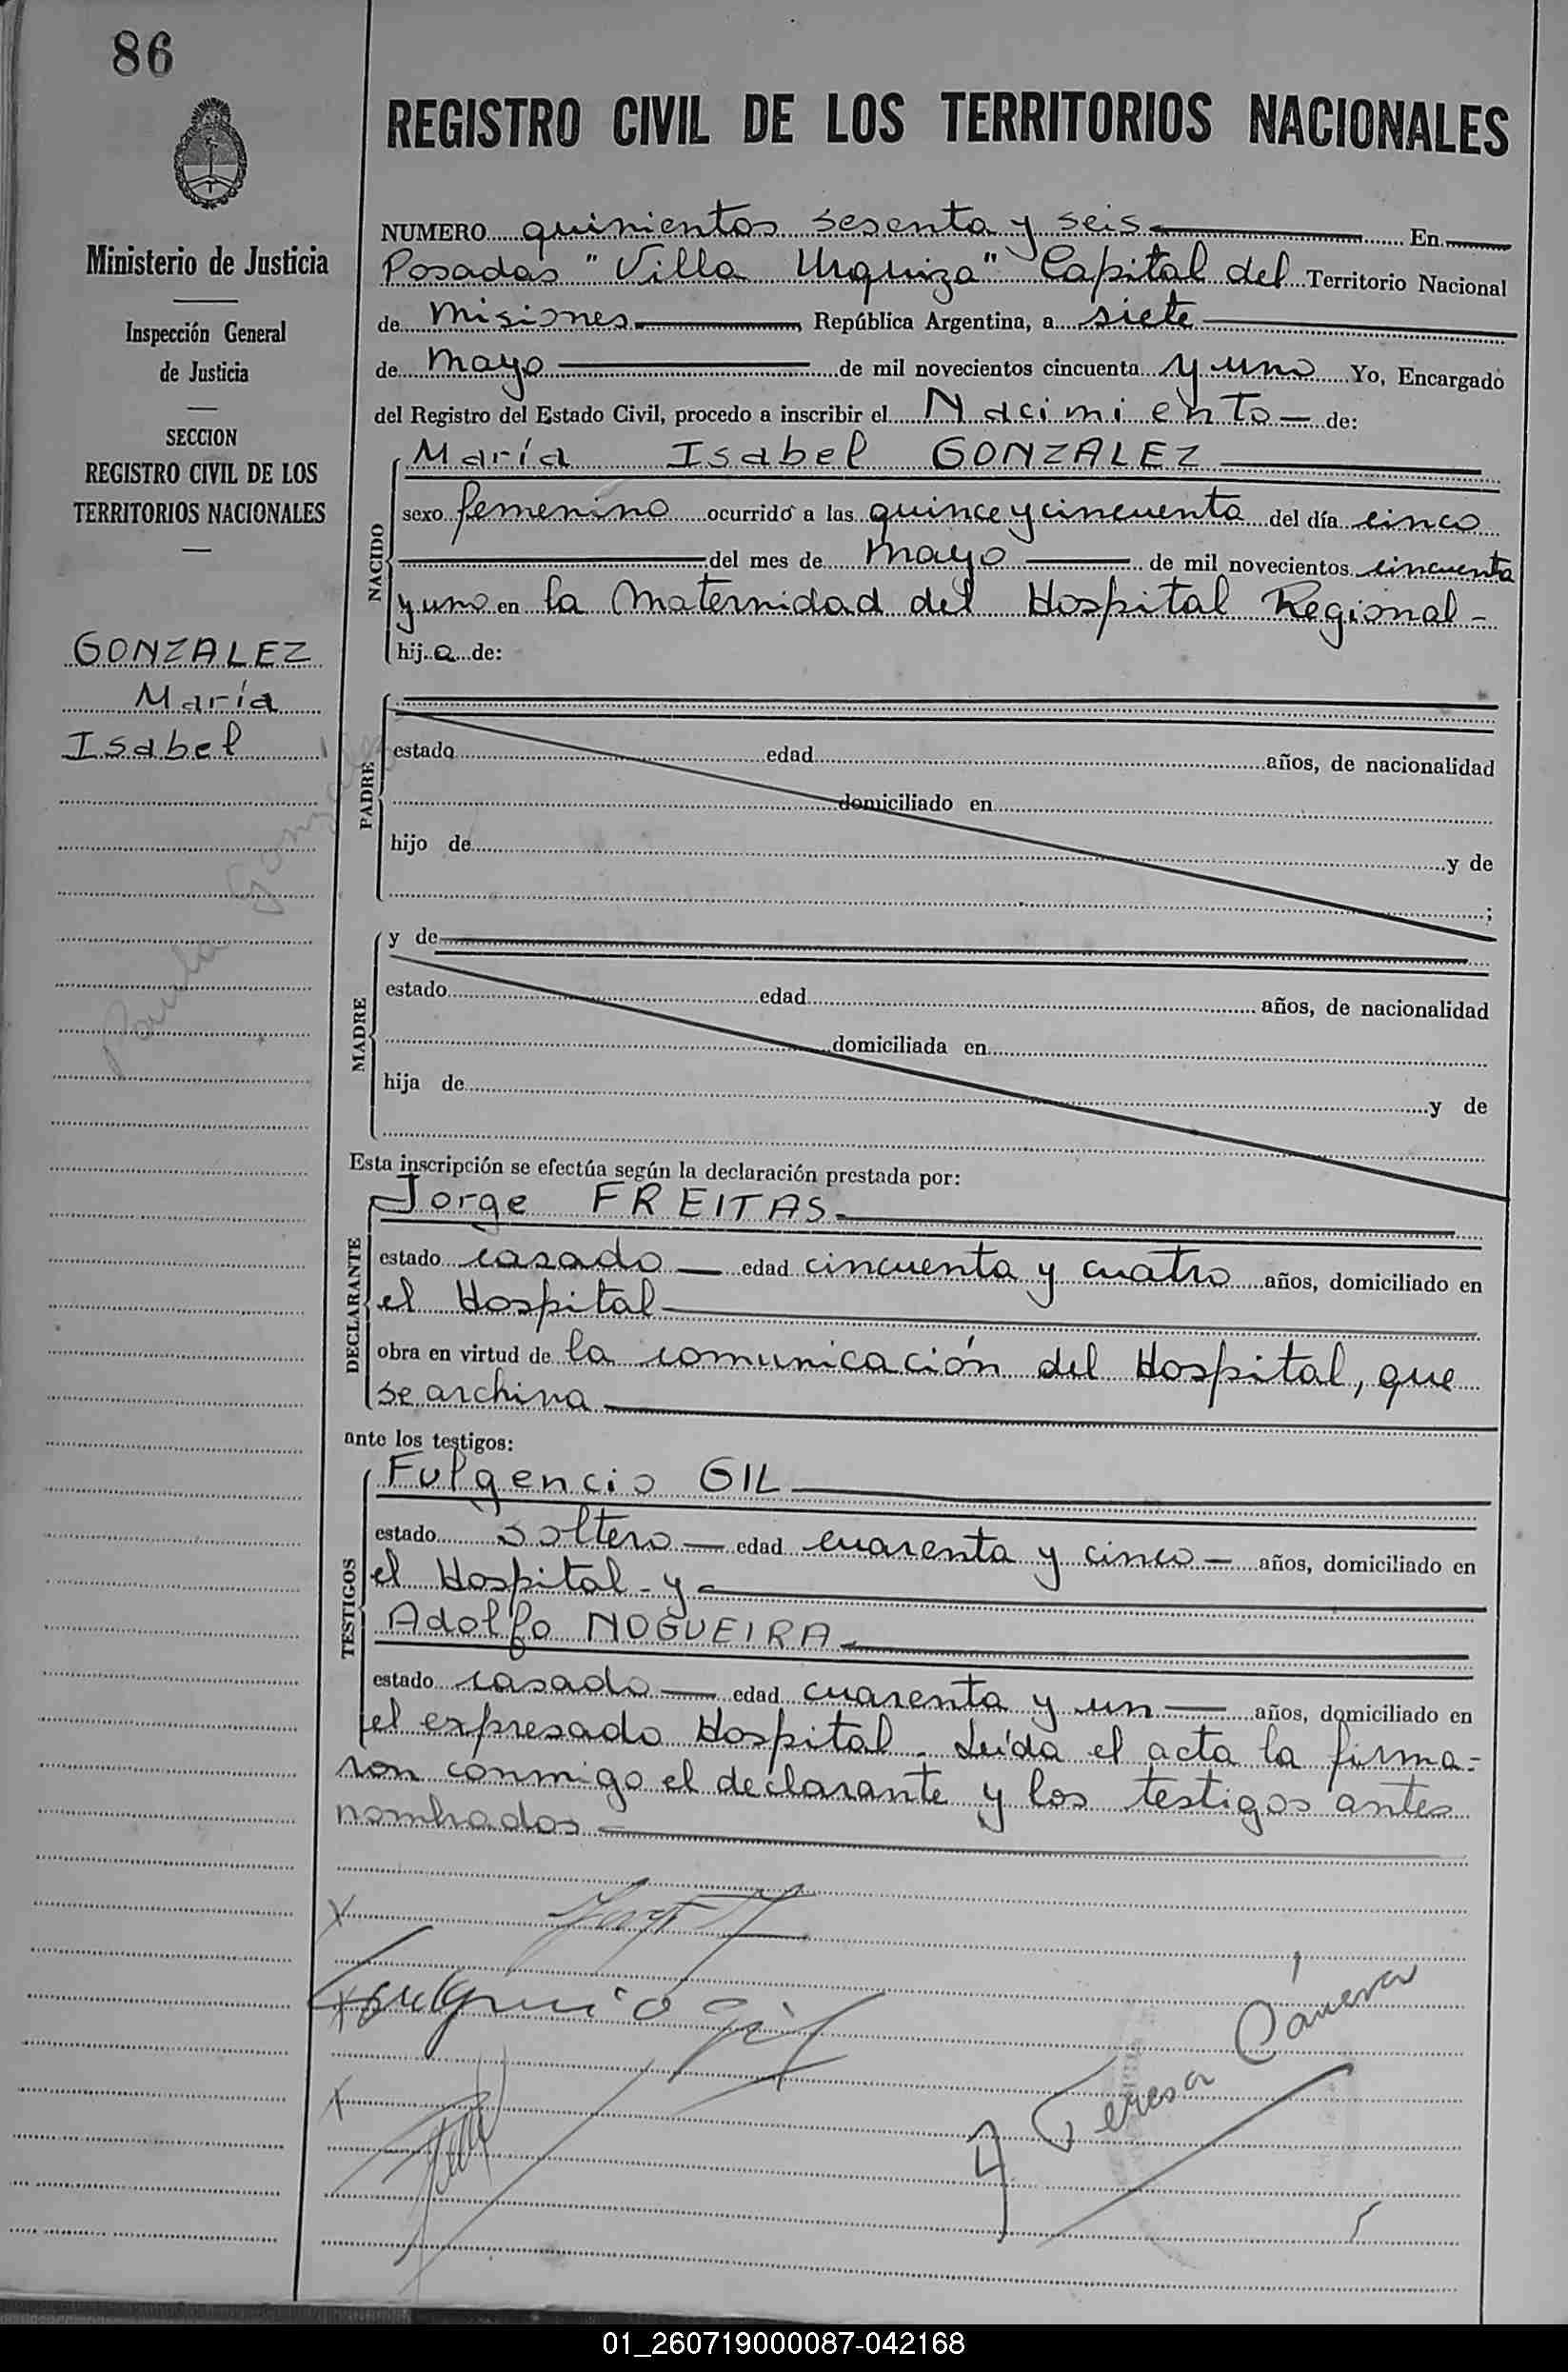 86
REGISTRO CIVIL DE LOS TERRITORIOS NACIONALES
Ministerio de Justicia
Inspección General
de Justicia
SECCION
REGISTRO CIVIL DE LOS
TERRITORIOS NACIONALES
GONZALEZ
María
Isabel
Paula Gonzalez
NUMERO quinientos sesenta y seis En
Posadas "Villa Urquiza" Capital del Territorio Nacional
de Misiones, República Argentina, a siete
de mayo de mil novecientos cincuenta y uno Yo, Encargado
del Registro del Estado Civil, procedo a inscribir el Nacimiento de:
NACIDO
María Isabel GONZALEZ
sexo femenino ocurrido a las quince y cincuenta del día cinco
del mes de mayo de mil novecientos cincuenta
y uno en la Maternidad del Hospital Regional-
hij a de:
PADRE
estado edad años, de nacionalidad
domiciliado en
hijo de y de
;
MADRE
y de
estado edad años, de nacionalidad
domiciliada en
hija de y de
Esta inscripción se efectúa según la declaración prestada por:
DECLARANTE
Jorge FREITAS
estado casado edad cincuenta y cuatro años, domiciliado en
el Hospital
obra en virtud de la comunicación del Hospital, que
se archiva
ante los testigos:
TESTIGOS
Fulgencio GIL
estado soltero edad cuarenta y cinco años, domiciliado en
el Hospital - y
Adolfo NOGUEIRA
estado casado edad cuarenta y un años, domiciliado en
el expresado Hospital. Leída el acta la firma-
ron conmigo el declarante y los testigos antes
nombrados
Fulgencio Gil
Teresa Cáneva
01_260719000087-042168